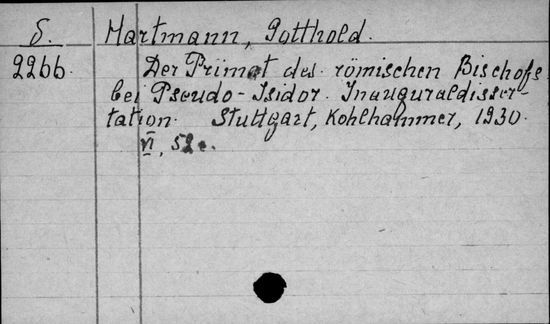 S. Hartmann, Gotthold.
2266. Der Primat des römischen Bischofs
bei Pseudo-Isidor. Inauguraldisser-
tation. Stuttgart, Kohlhammer, 1930.
VI, 52